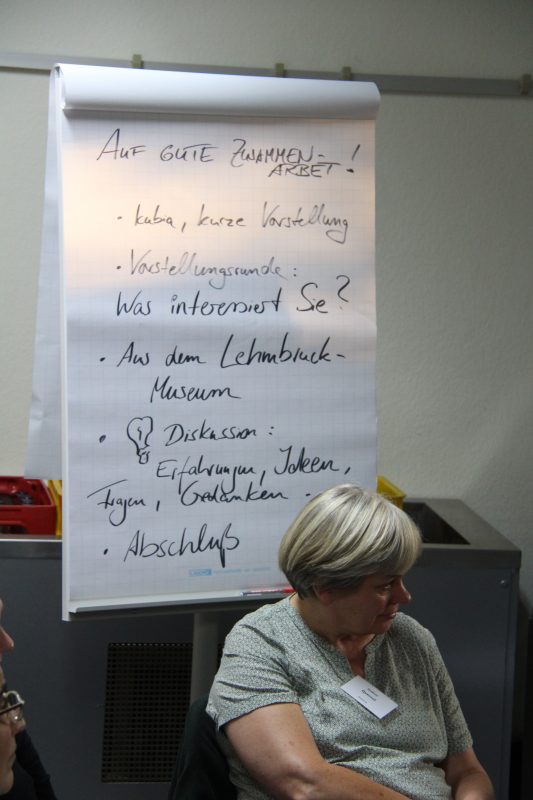 AUF GUTE ZUSAMMEN-
ARBEIT!
· kubia, kurze Vorstellung
· Vorstellungsrunde:
Was interessiert Sie?
· Aus dem Lehmbruck-
Museum
· Diskussion:
Erfahrungen, Ideen,
Fragen, Gedanken.
· Abschluß